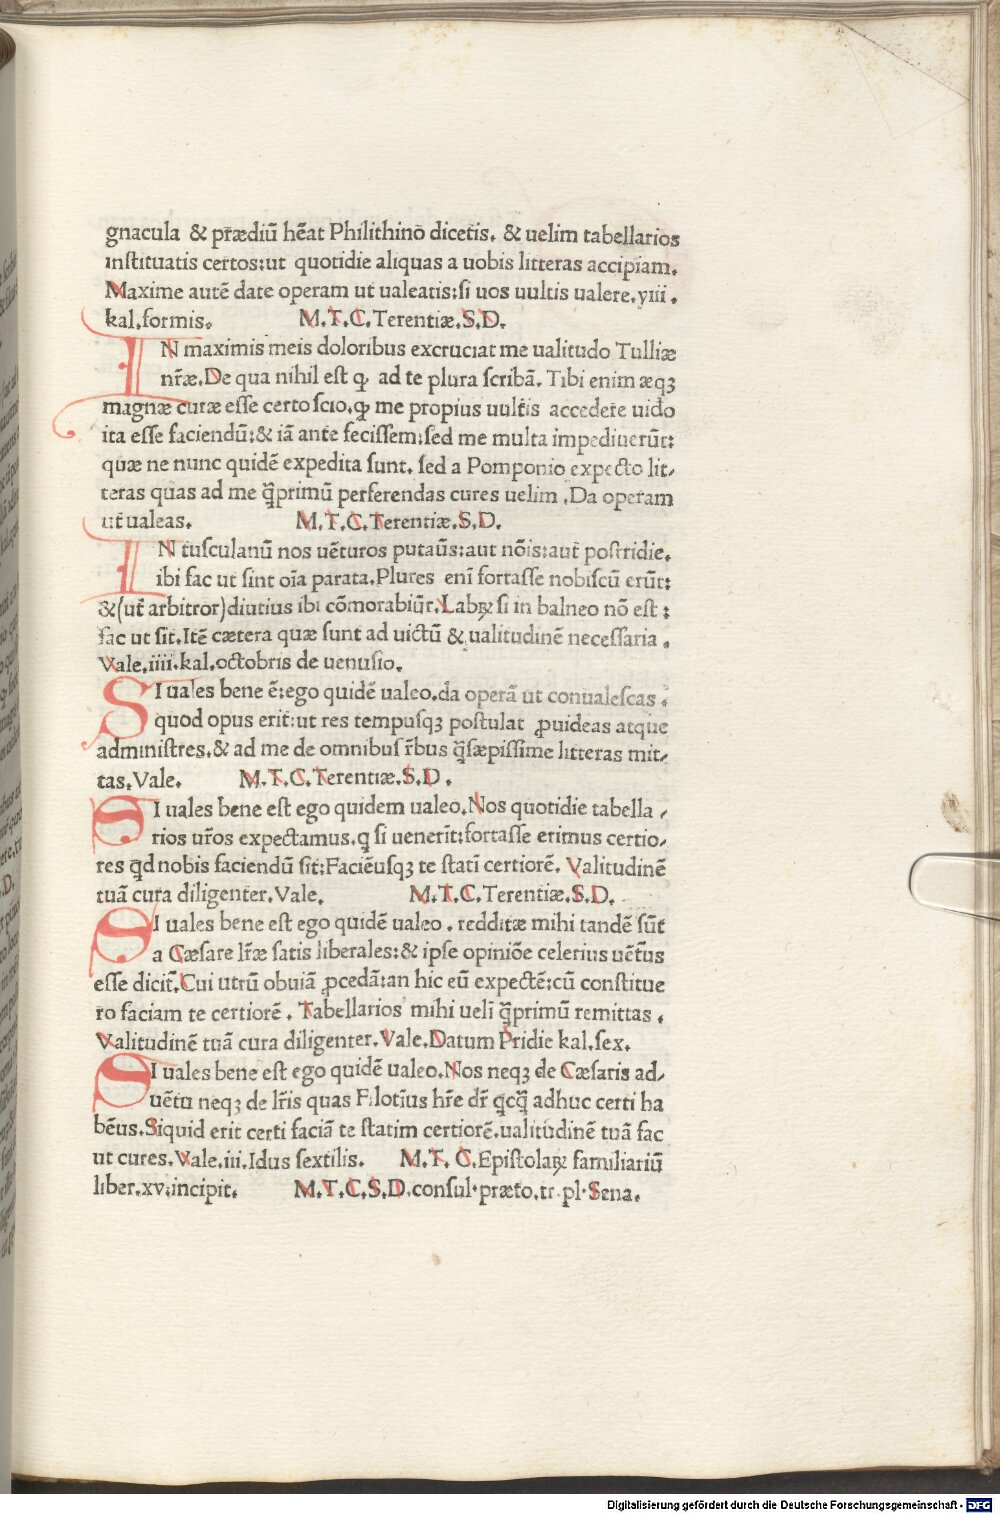 gnacula & pr̃ædiũ hẽat Philithinõ dicetis. & uelim tabellarios
instituatis certos:ut quotidie aliquas a uobis litteras accipiam.
Maxime autẽ date operam ut ualeatis:si uos uultis ualere.yiii.
kal.formis. M.T.C.Terentiæ.S.D.
IN maximis meis doloribus excruciat me ualitudo Tulliæ
nr̃æ.De qua nihil est ꝙ ad te plura scribã. Tibi enim æqꝫ
magnæ curæ esse certo scio.ꝙ me propius uultis accedere uido
ita esse faciendũ:& iã ante fecissem:sed me multa impediuerũt:
quæ ne nunc quidẽ expedita sunt. sed a Pomponio expecto lit⸗
teras quas ad me q̃primũ perferendas cures uelim .Da operam
ut ualeas. M.T.C.Terentiæ.S.D.
IN tusculanũ nos uẽturos putaũs:aut nõis:aut postridie.
ibi fac ut sint oĩa parata.Plures enĩ fortasse nobiscũ erũt:
&(ut arbitror)diutius ibi cõmorabiũr.Labꝝ si in balneo nõ est :
fac ut sit.Itẽ cætera quæ sunt ad uictũ & ualitudinẽ necessaria .
Vale.iiii.kal.octobris de uenusio.
SI uales bene ẽ:ego quidẽ ualeo.da operã ut conualescas .
quod opus erit:ut res tempusqꝫ postulat ꝓuideas atque
administres.& ad me de omnibus r̃bus q̃sæpissime litteras mit⸗
tas.Vale. M.T.C.Terentiæ.S.D.
SI uales bene est ego quidem ualeo.Nos quotidie tabella ⸗
rios ur̃os expectamus.q si uenerĩt:fortasse erimus certio⸗
res q̃d nobis faciendũ sit:Faciẽusqꝫ te statĩ certiorẽ. Valitudinẽ
tuã cura diligenter.Vale. M.T.C.Terentiæ.S.D.
SI uales bene est ego quidẽ ualeo . redditæ mihi tandẽ sũt
a Cæsare lr̃æ satis liberales:& ipse opiniõe celerius uẽtus
esse dicit̃.Cui utrũ obuiã ꝓcedã:an hic eũ expectẽ:cũ constitue
ro faciam te certiorẽ . Tabellarios mihi uelĩ q̃primũ remittas .
Valitudinẽ tuã cura diligenter.Vale.Datum Pridie kal.sex.
SI uales bene est ego quidẽ ualeo.Nos neqꝫ de Cæsaris ad⸗
uẽtu neqꝫ de lr̃is quas Filotĩus hr̃e dr̃ q̃cq̃ adhuc certi ha
bẽus.Siquid erit certi faciã te statim certiorẽ.ualitudinẽ tuã fac
ut cures.Vale.iii.Idus sextilis. M.T. C.Epistolaꝝ familiariũ
liber.xv:incipit. M.T.C.S.D.consul·præto.tr.pl·Sena.
Digitalisierung gefördert durch die Deutsche Forschungsgemeinschaft - DFG